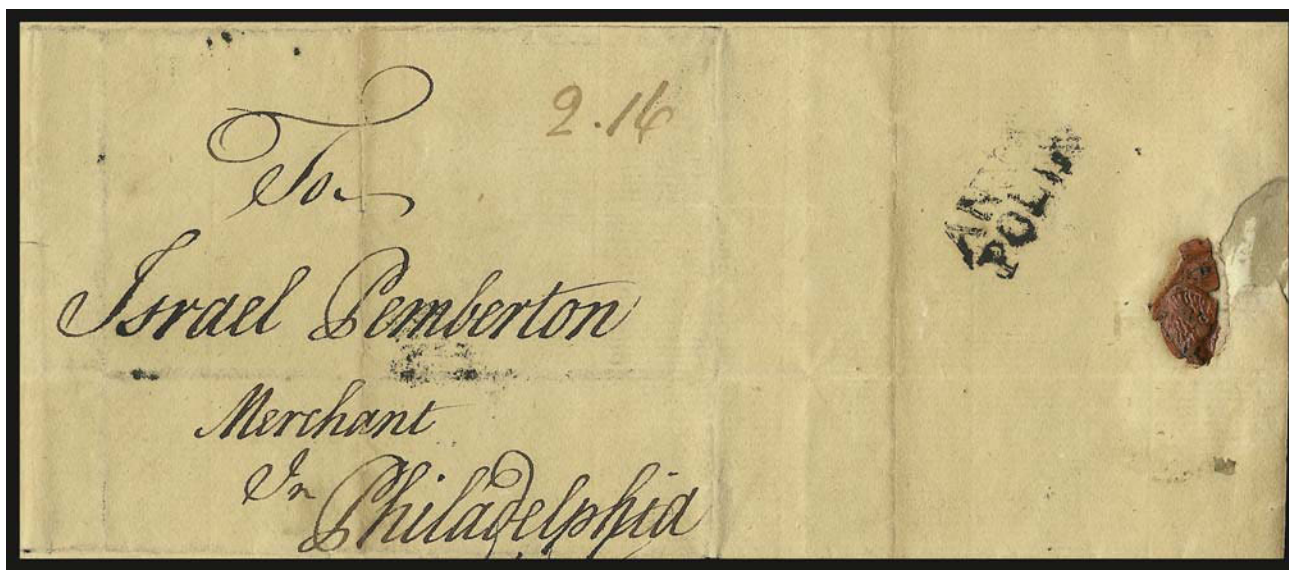 To
2.16
Israel Pemberton
Merchant
In
Philadelphia
ANNA
POLIS